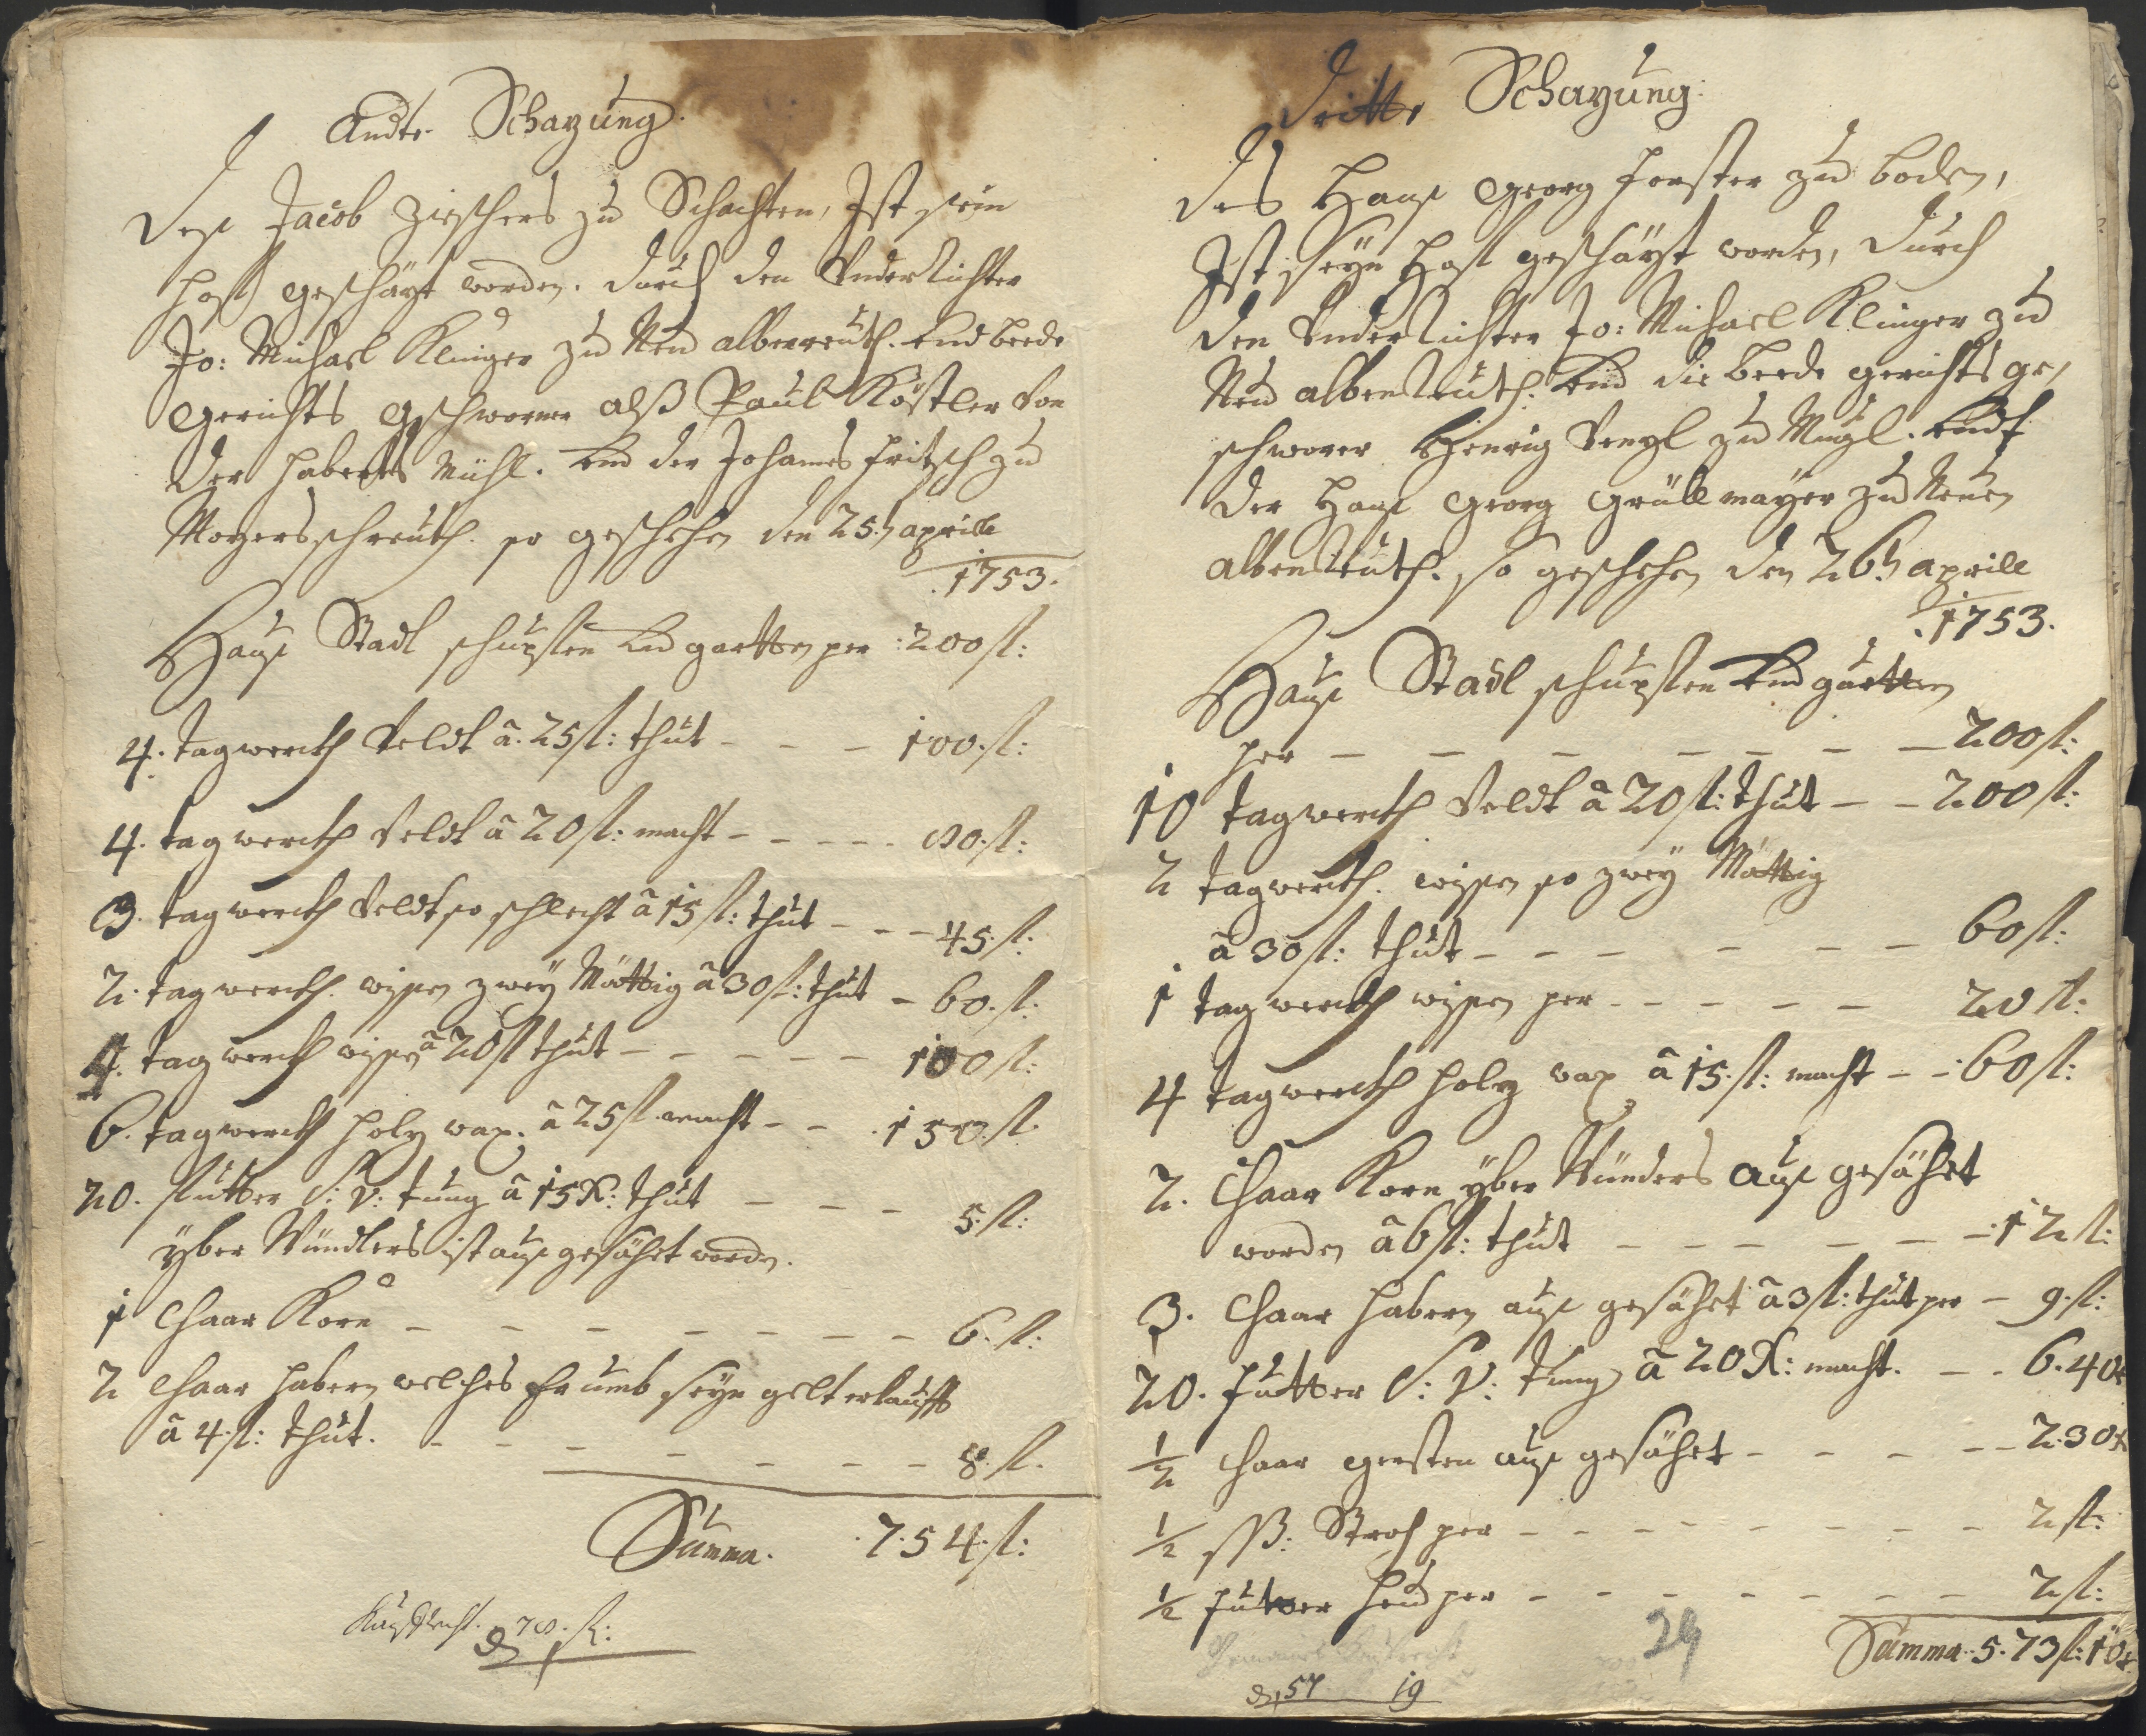 Andte Schazung.
Des Jacob Zieschers zu Schachten, Ist sein
Hoff geschäzt worden. durch den Underrichter
Jo: Michael Klinger zu Neu alberreuth. und beede
Gerichts Gschworner alß Paul Köstler von
der haberts Mühl. und der Johannes Fritzsch zu
Mogersschreuth. so geschehen den 25.n aprill
.1753.
Hauß Stadl schupffen und gartten per :200 fl:
4. tagwerckh Veldt â. 25 fl: thut - - - 100. fl:
4. tagwerckh Veldt â 20 fl: macht - - - - 80. fl:
3. tagwerckh Veldt so schlecht â 15 fl: thut - - - 45. fl:
2. tagwerckh. wissen zwey Mättig â 30 fl: thut - 60. fl:
4. tagwerckh wissen â 20 fl thut - - - - - 100 fl:
6. tagwerckh holz wax. â 25 fl macht - - . 150. fl.
20. futter S: V: tung â 15 X: thut - - - 5. fl:
yber Winders ist auß gesähet worden.
1 Chaar Korn - - - - - - - - 6. fl:
2 Chaar habern welches Er umb seyn gelt erkaufft
â 4. fl: thut. - - - - - - - 8. fl.
Summa. .7.54. fl:
Kauffrecht. 78. fl:
Dritte Schazung.
Des Hanß Georg Forster zu boden,
Ist seyn Hoff geschäzt worden, durch
den Underrichter Jo: Michael Klinger zu
Neu albenreuth. und die beede gerichts ge,
schworer Henrig Venzl zu Mugl. und
der Hanß Georg Grüllmayer zu Neuen
albenreuth. so geschehen den 26.n aprill
.1753.
Hauß Stadl schupffen und gartten
per - - - - - - - - 200 fl:
10 tagwerckh Veldt â 20 fl: thut - - 200 fl:
2 tagwerckh. wissen so zwey Mättig
â 30 fl: thut - - - - - - 60 fl:
1 tagwerckh wissen per - - - - - 20 fl:
4 tagwerckh holz wax â 15. fl: macht - - 60 fl:
2. Chaar Korn yber Winders auß gesähet
worden â 6 fl: thut - - - - - - 12 fl:
3. Chaar habern auß gesähet â 3 fl: thut per - 9. fl:
20. futter S: V: tung â 20 X: macht. - - 6.40 x
1/2 Chaar gersten auß gesähet - - - - - 2.30 x
1/2 ßß: Stroh per - - - - - - - - 2 fl:
1/2 futter heu per - - - - - - - - 2 fl:
Summa. 5.73 fl: 10 x
29
57 19